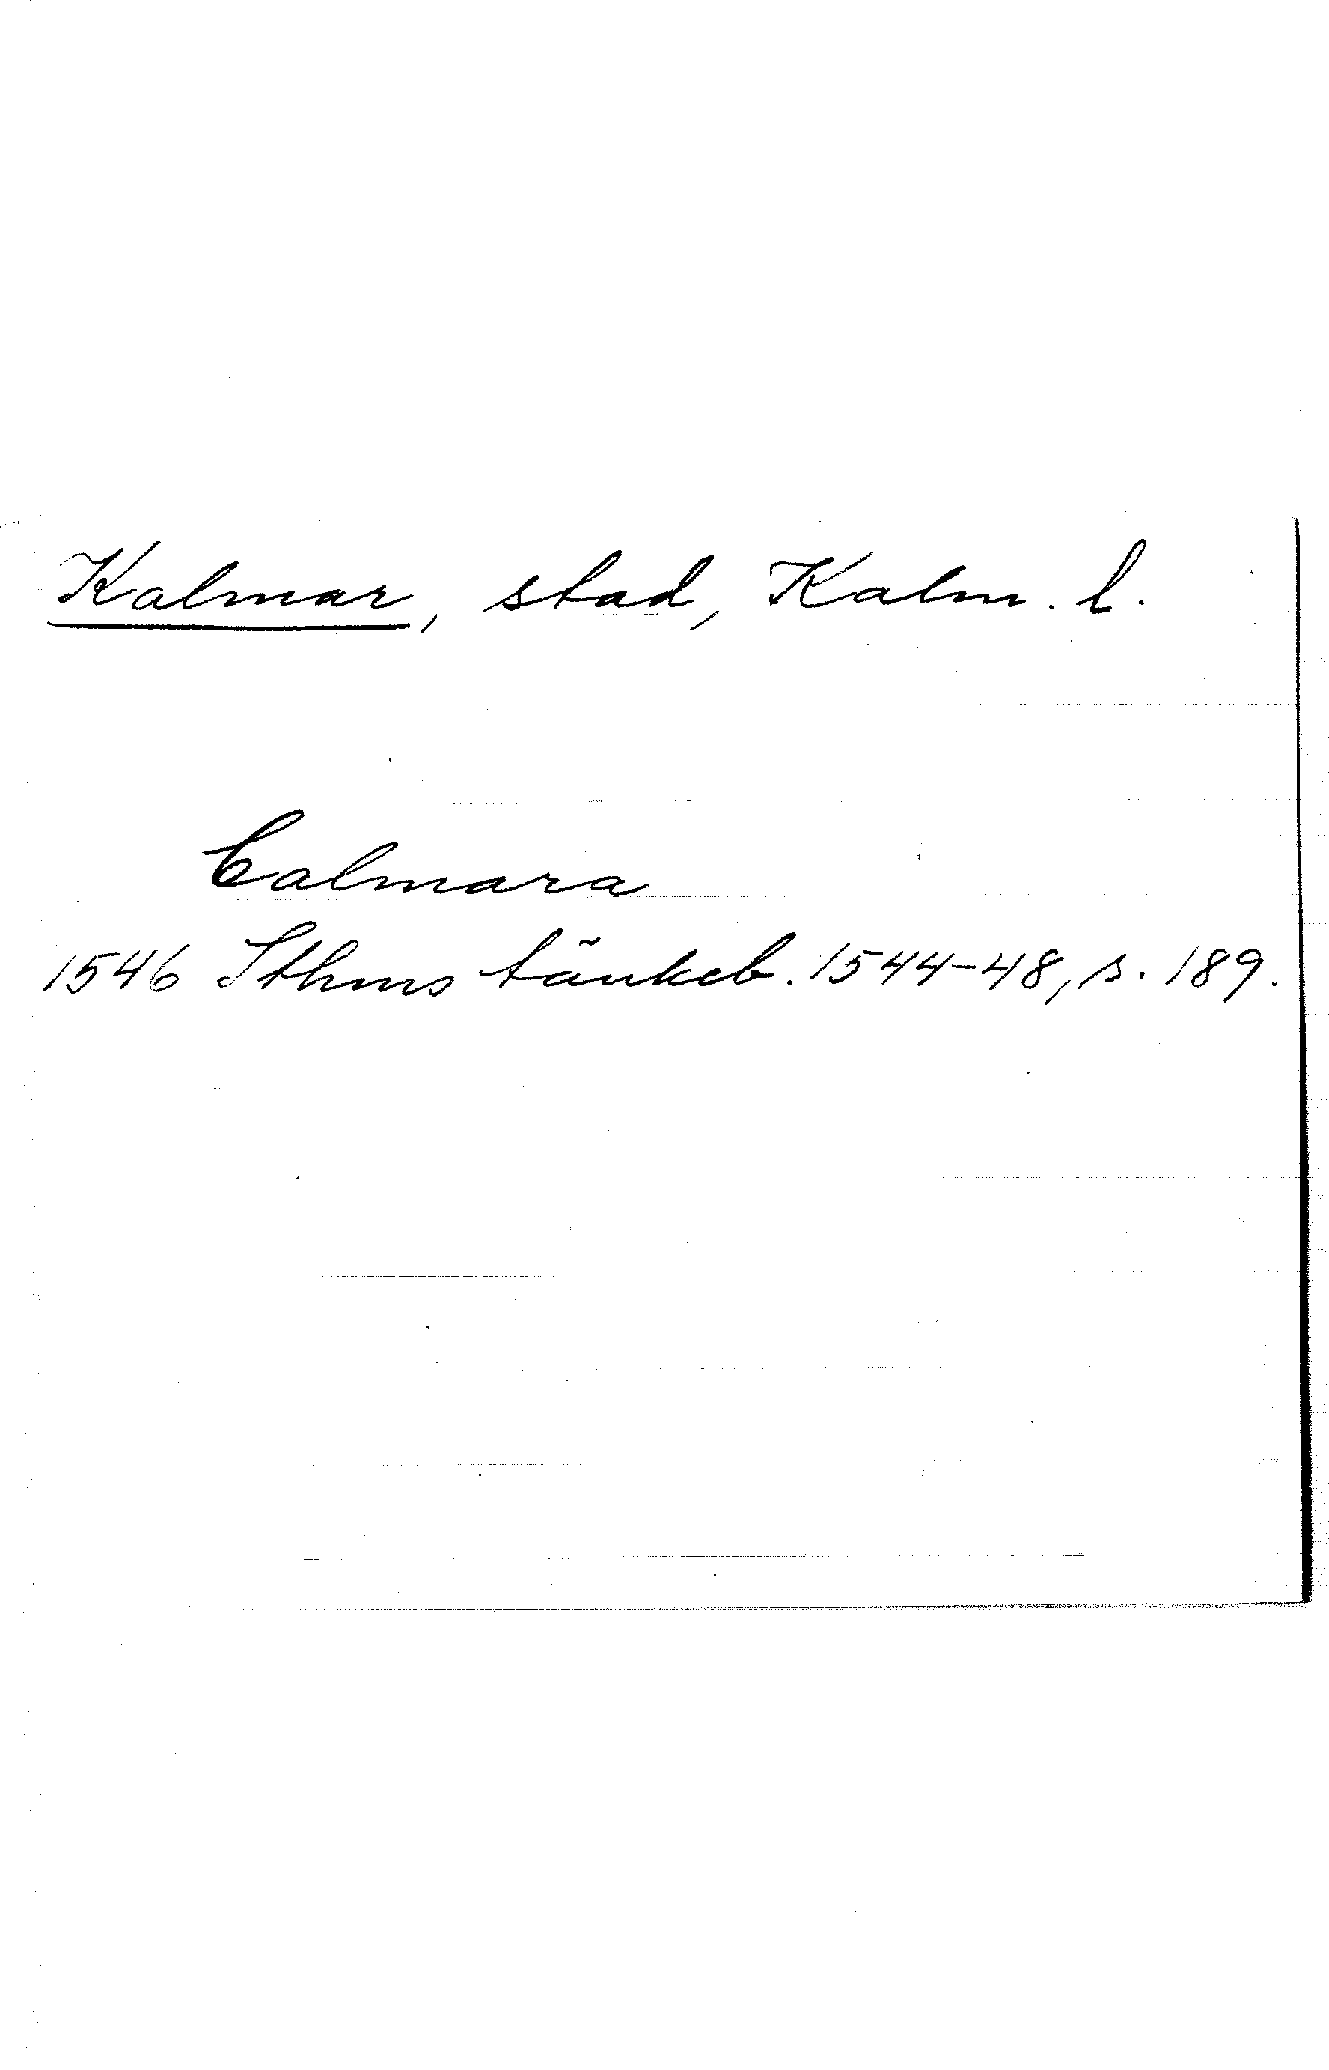 Kalmar, stad, Kalm. l.
Calmara
1546 Sthms tänkeb. 1544-48, s. 189.